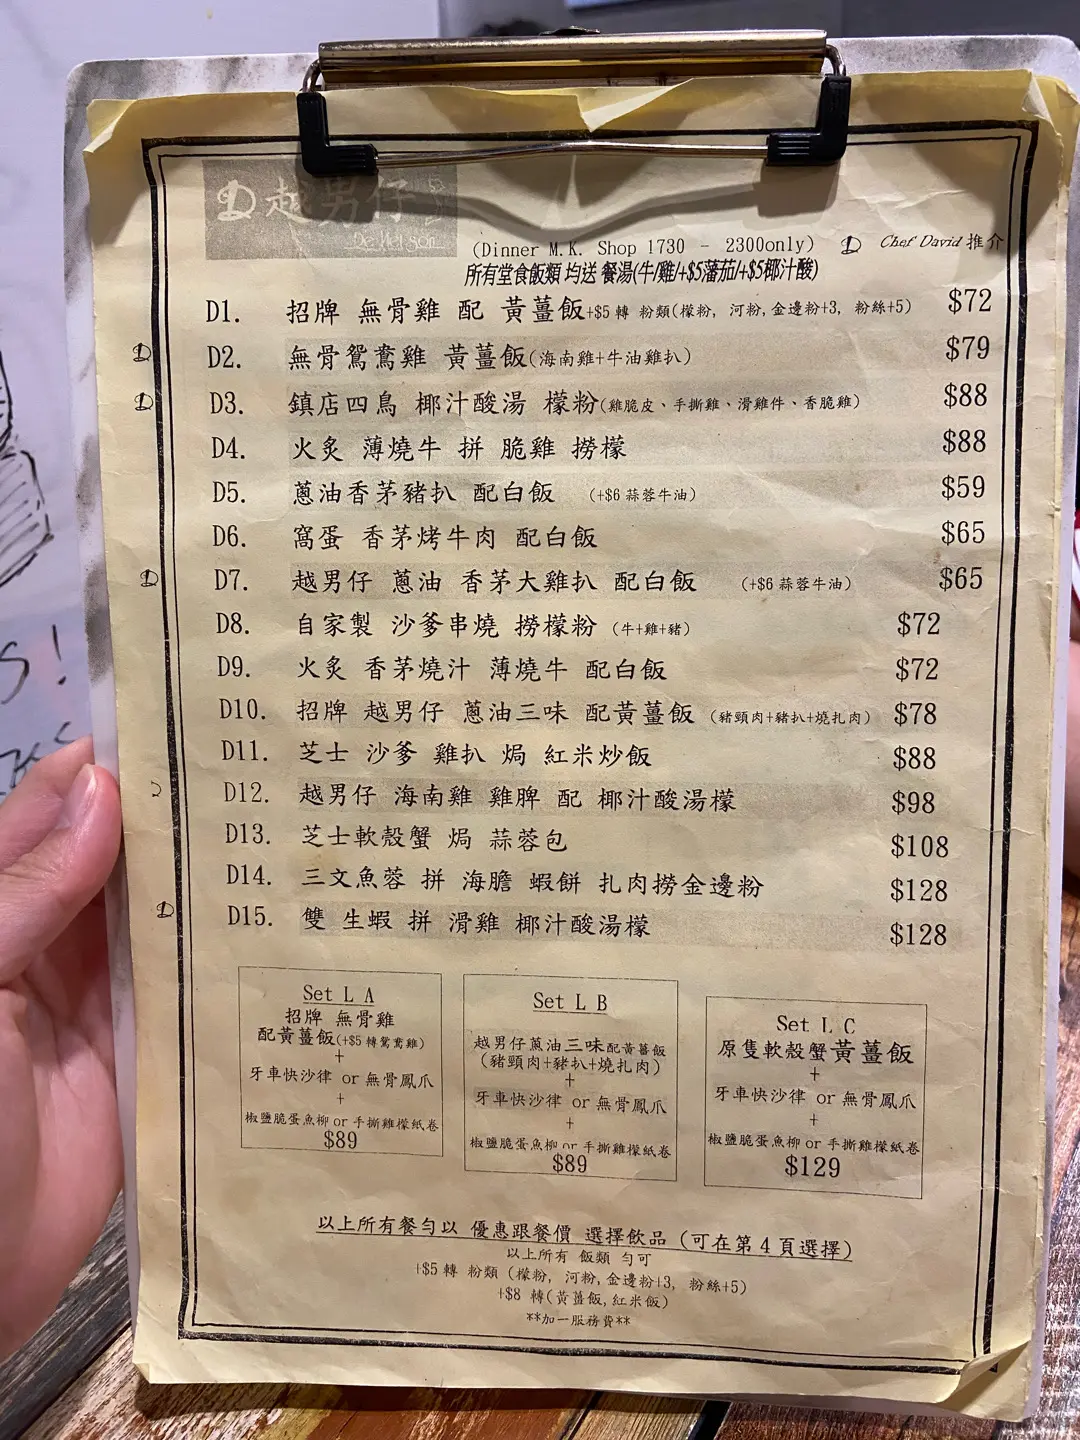 D 越男仔
(Dinner M.K. Shop 1730 - 2300only) D Chef David 推介
所有堂食飯類 均送 餐湯(牛/雞/+$5蕃茄/+$5椰汁酸)
D1. 招牌 無骨雞 配 黃薑飯+$5 轉 粉類(檬粉, 河粉, 金邊粉+3, 粉絲+5) $72
D D2. 無骨鴛鴦雞 黃薑飯(海南雞+牛油雞扒) $79
D D3. 鎮店四鳥 椰汁酸湯 檬粉(雞脆皮、手撕雞、滑雞件、香脆雞) $88
D4. 火炙 薄燒牛 拼 脆雞 撈檬 $88
D5. 蔥油香茅豬扒 配白飯 (+$6 蒜蓉牛油) $59
D6. 窩蛋 香茅烤牛肉 配白飯 $65
D D7. 越男仔 蔥油 香茅大雞扒 配白飯 (+$6 蒜蓉牛油) $65
D8. 自家製 沙爹串燒 撈檬粉 (牛+雞+豬) $72
D9. 火炙 香茅燒汁 薄燒牛 配白飯 $72
D10. 招牌 越男仔 蔥油三味 配黃薑飯 (豬頸肉+豬扒+燒扎肉) $78
D11. 芝士 沙爹 雞扒 焗 紅米炒飯 $88
D12. 越男仔 海南雞 雞脾 配 椰汁酸湯檬 $98
D13. 芝士軟殼蟹 焗 蒜蓉包 $108
D14. 三文魚蓉 拼 海膽 蝦餅 扎肉撈金邊粉 $128
D D15. 雙 生蝦 拼 滑雞 椰汁酸湯檬 $128
Set L A
招牌 無骨雞
配黃薑飯(+$5 轉鴛鴦雞)
+
牙車快沙律 or 無骨鳳爪
+
椒鹽脆蛋魚柳 or 手撕雞檬紙卷
$89
Set L B
越男仔蔥油三味配黃薑飯
(豬頸肉+豬扒+燒扎肉)
+
牙車快沙律 or 無骨鳳爪
+
椒鹽脆蛋魚柳 or 手撕雞檬紙卷
$89
Set L C
原隻軟殼蟹黃薑飯
+
牙車快沙律 or 無骨鳳爪
+
椒鹽脆蛋魚柳 or 手撕雞檬紙卷
$129
以上所有餐勻以 優惠跟餐價 選擇飲品 (可在第4頁選擇)
以上所有 飯類 勻可
+$5 轉 粉類 (檬粉, 河粉, 金邊粉+3, 粉絲+5)
+$8 轉(黃薑飯, 紅米飯)
**加一服務費**